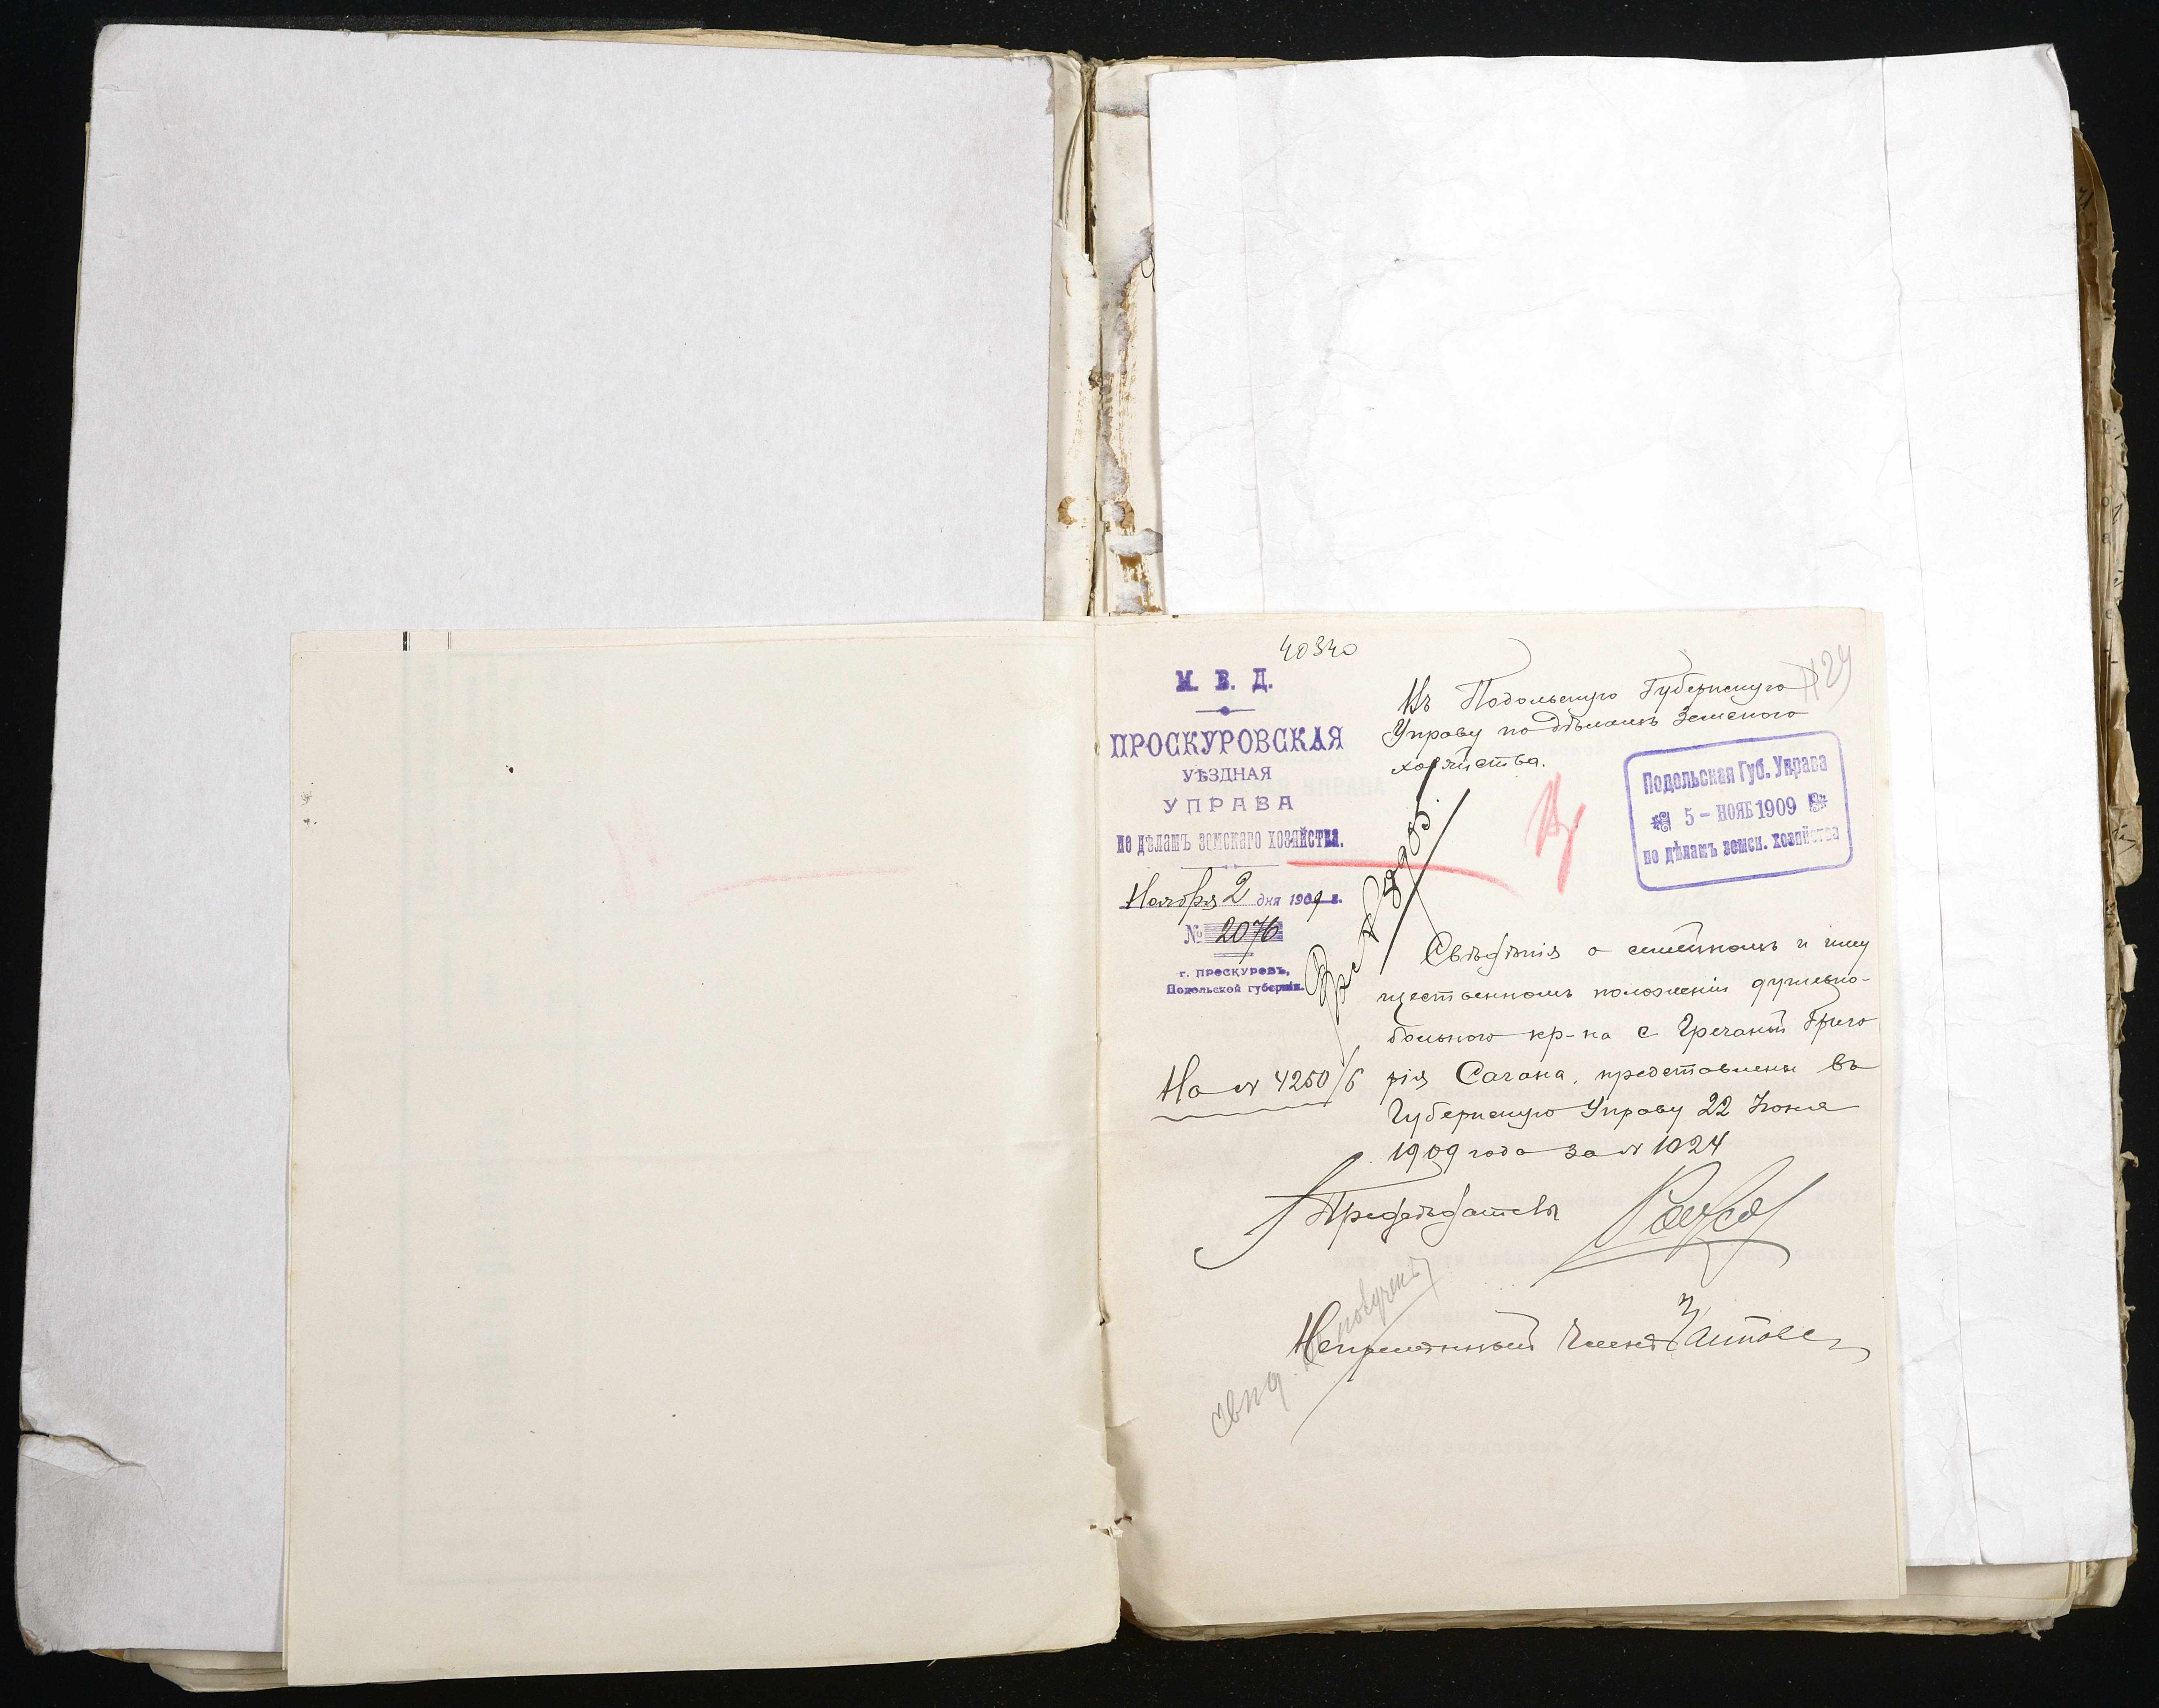 40340
М. В. Д.
ПРОСКУРОВСКАЯ
УѢЗДНАЯ
УПРАВА
по дѣламъ земскаго хозяйства.
Ноября 2 дня 1909 г.
№ 2076
г. ПРОСКУРОВЪ,
Подольской губерніи.
На № 4250/6
Въ Подольскую Губернскую
Управу по Дѣламъ Земскаго
хозяйства.
Подольская Губ. Управа
5 - НОЯБ 1909
по дѣламъ земск. хозяйства
Свѣдѣнія о семейномъ и иму
щественномъ положеніи душевно-
больного кр-на с Гречаной Григо
рія Сачана, представлены въ
Губернскую Управу 22 Іюня
1909 года за № 1024
Предсѣдатель
Непремѣнный Членъ